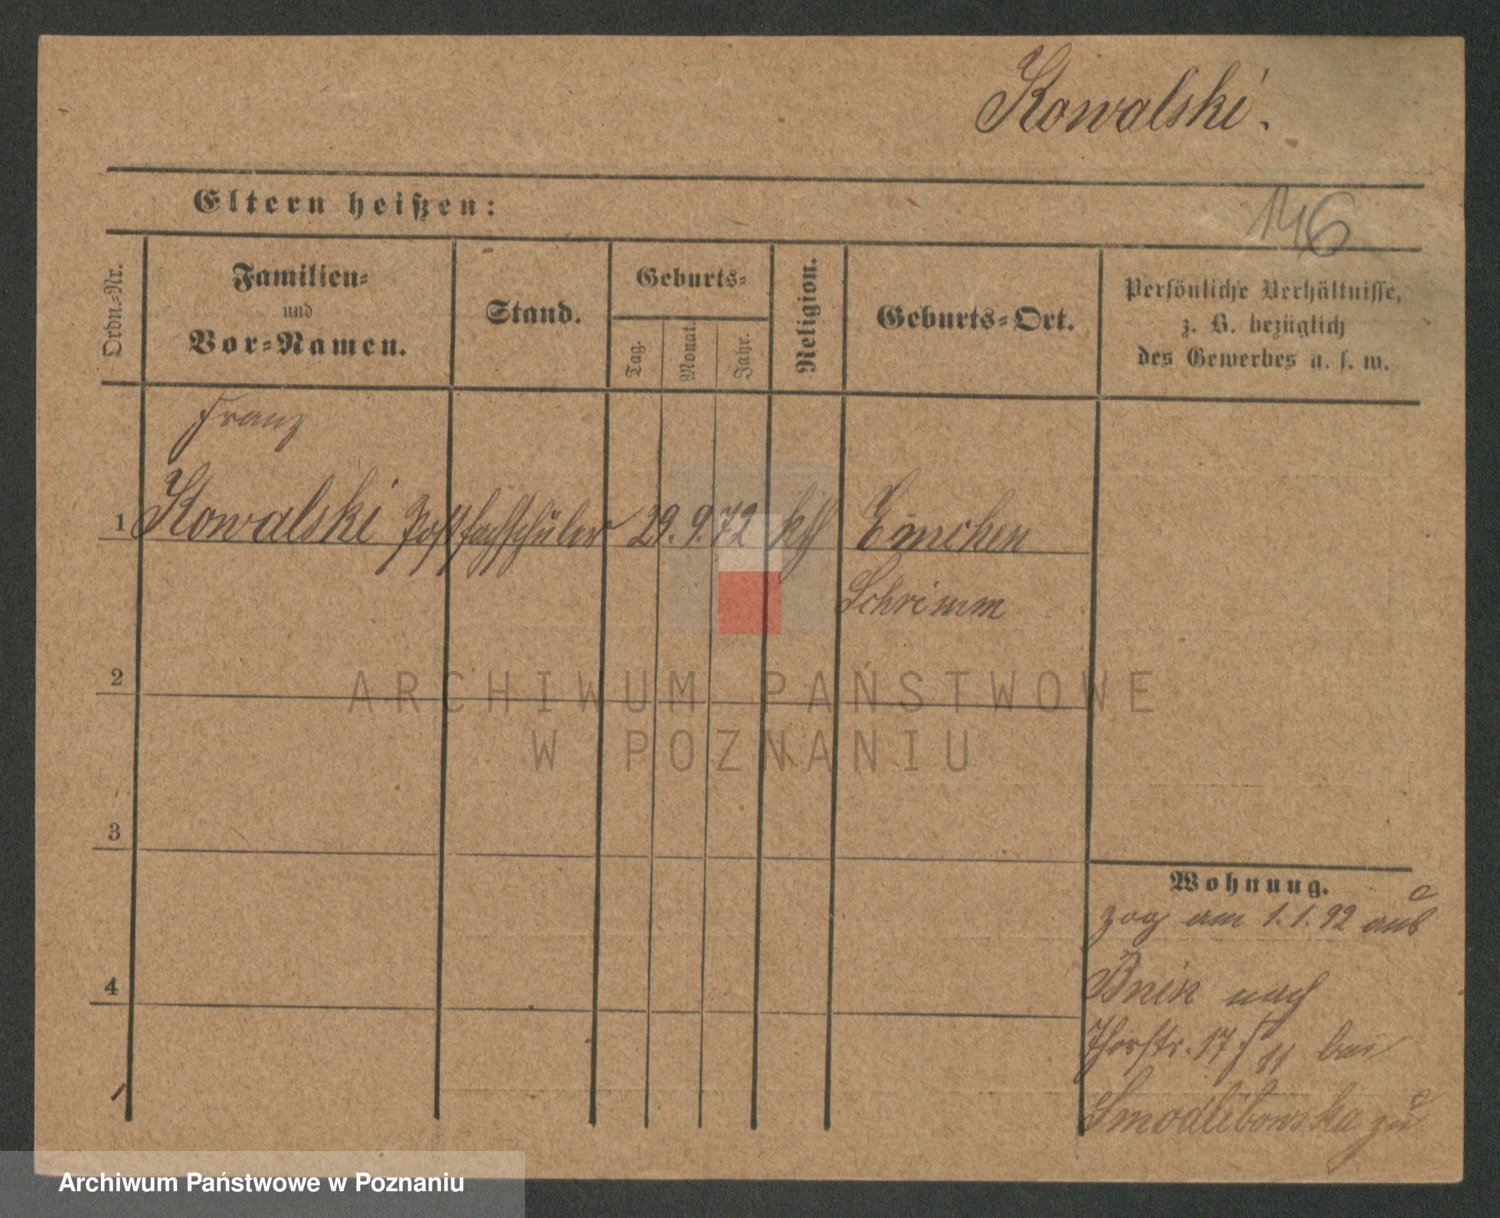 Kowalski.
146
Eltern heißen:
Ordn.-Nr.
Familien-
und
Vor-Namen.
Stand.
Geburts-
Tag.
Monat.
Jahr.
Religion.
Geburts-Ort.
Persönliche Verhältnisse,
z. B. bezüglich
des Gewerbes u. s. w.
Franz
1 Kowalski Postfachschüler 29. 9. 72 kth Emchen
Schrimm
2
3
4
Wohnung.
zog am 1.1.92 aus
Bnin nach
17 bei
Smodlibowska zu
ARCHIWUM PAŃSTWOWE
W POZNANIU
Archiwum Państwowe w Poznaniu